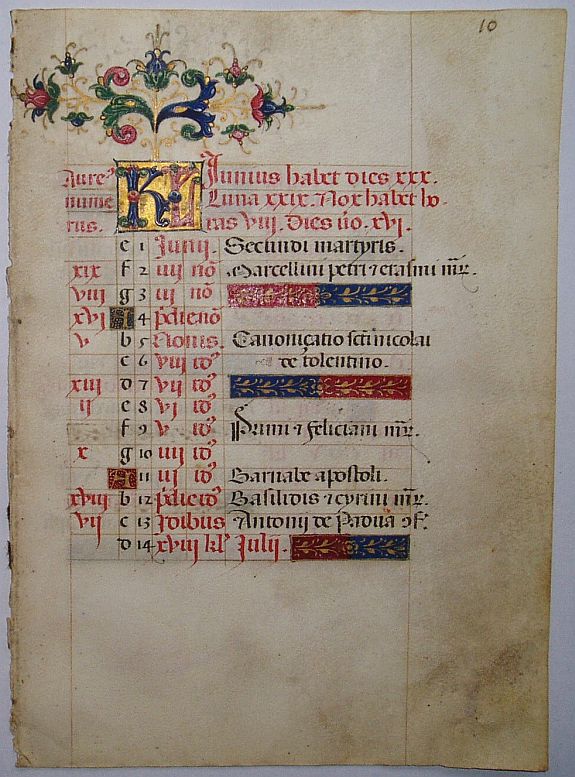 10
Aure⁹ KL Junius habet dies xxx.
nume Luna xxix. Nox habet ho
rus. ras viii. Dies ṽo. xvi.
e 1 Junij Secundi martyris.
xix f 2 iiij nõ Marcellini petri ⁊ erasmi m̃r.
viii g 3 iij nõ
xvi A 4 pridie nõ
v b 5 Nonis. Canonicatio scti nicolai
c 6 viij id⁹ de tolentino.
xiii d 7 vij id⁹
ii e 8 vi id⁹
f 9 v id⁹ Primi ⁊ feliciani m̃r.
x g 10 iiij id⁹
A 11 iij id⁹ Barnabe apostoli.
xviii b 12 pridie id⁹ Basilidis ⁊ cyrini m̃r.
vii c 13 Idibus Antonij de Padua ɔf.
d 14 xviij kl Julij.